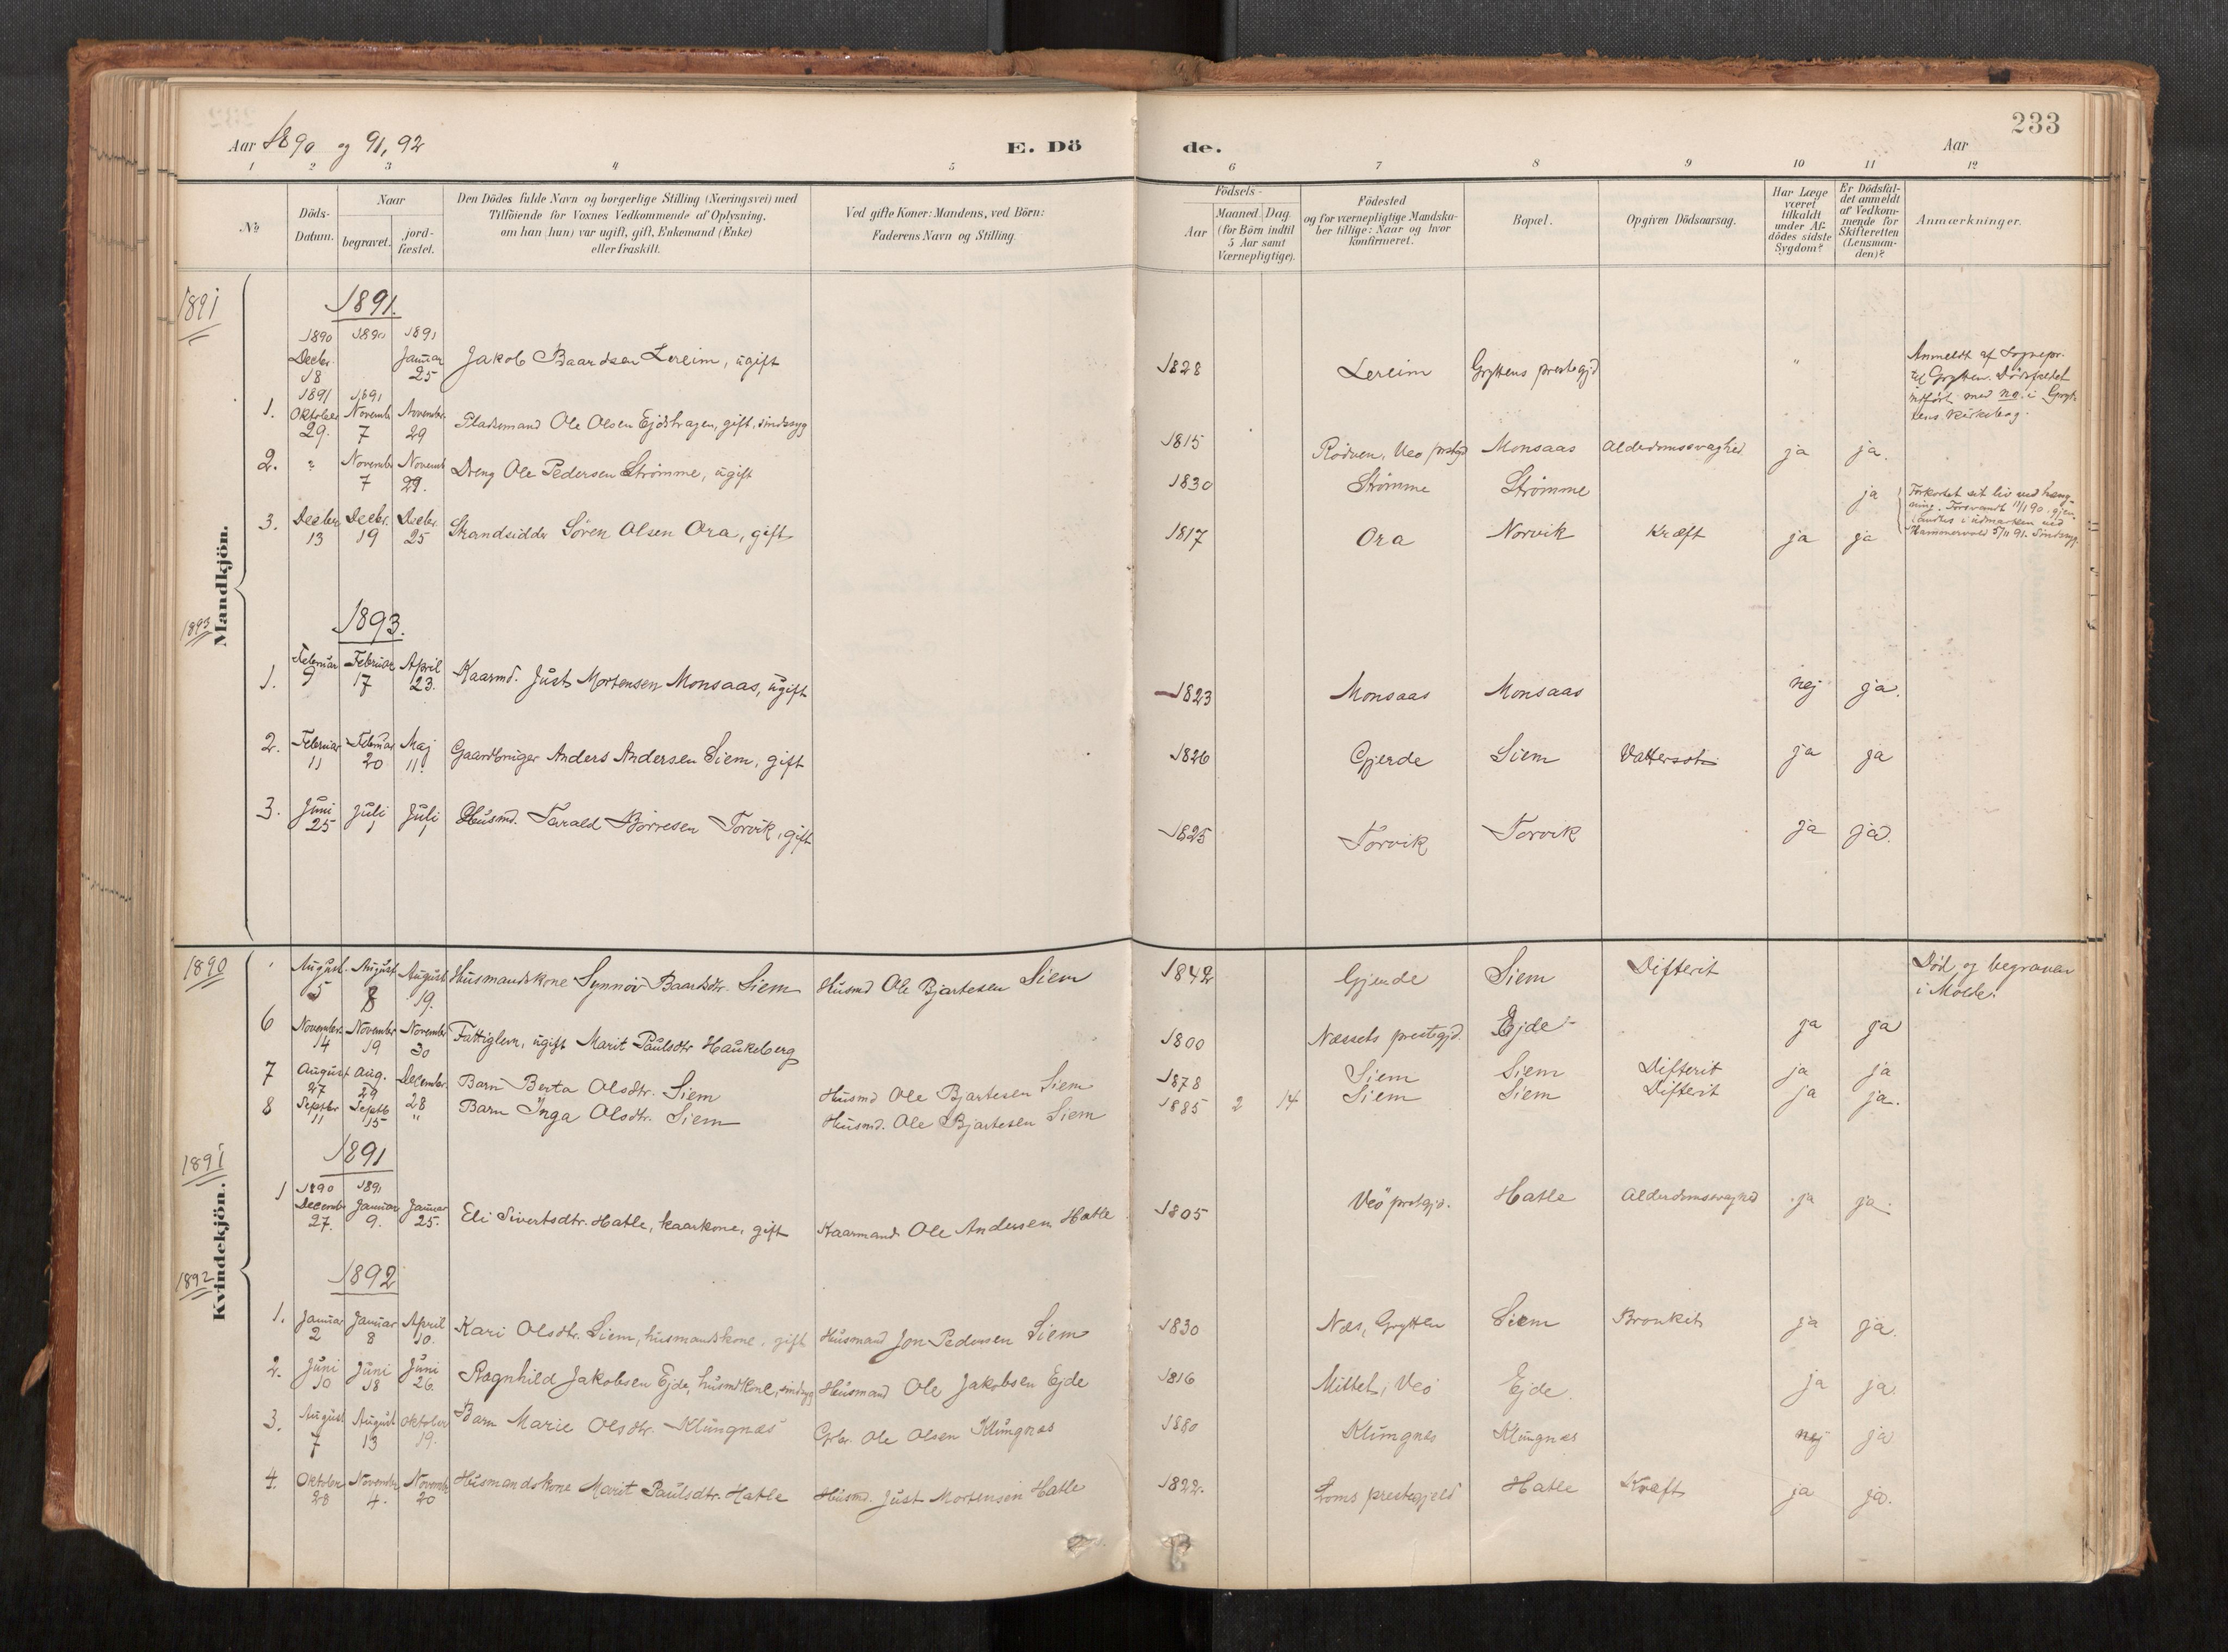 233
Aar 1890 og 91, 92
E. Dö de.
Aar
1 2 3 4 5 6 7 8 9 10 11 12
№
Döds-Datum.
Naar
begravet.
jord-fæstet.
Den Dödes fulde Navn og borgerlige Stilling (Næringsvei) med
Tilföiende for Voxnes Vedkommende af Oplysning,
om han (hun) var ugift, gift, Enkemand (Enke)
eller fraskilt.
Ved gifte Koner: Mandens, ved Börn:
Faderens Navn og Stilling.
Födsels-
Aar
Maaned. Dag.
(for Börn indtil
5 Aar samt
Værnepligtige).
Födested
og for værnepligtige Mandska-
ber tillige: Naar og hvor
konfirmeret.
Bopæl.
Opgiven Dödsaarsag.
Har Læge
været
tilkaldt
under Af-
dödes sidste
Sygdom?
Er Dödsfal-
det anmeldt
af Vedkom-
mende for
Skifteretten
(Lensman-
den)?
Anmærkninger.
Mandkjön.
1891 1891.
1890 1890 1891
Decbr. 18 Januar 25 Jakob Baardsen Lereim, ugift 1828 Lereim Gryttens prestegjd " Anmeldt af Sognepr.
til Grytten. Dödsfaldet
indført med no. i Gryt-
tens Kirkebog.
1891 1891
1. Oktober 29. Novembr 7 November 29 Pladsmand Ole Olsen Ejdshagen, gift, sindssyg 1815 Rödven, Veö prstgjd Monsaas Alderdomssvaghed ja ja.
2. ? Novembr 7 Novemb 29. Dreng Ole Pedersen Strømme, ugift 1830 Strömme Strømme ja Forkortet sit liv ved hæng-
ning. Forsvandt 11/1 90, gjen-
fandtes i udmarken ved
Hammervold 5/11 91. Sindssyg.
3. Decbr 13 Decbr. 19 Decbr. 25 Strandsidder Sören Olsen Ora, gift 1817 Ora Norvik Kræft ja ja
1893 1893.
1. Februar 9 Februar 17 April 23. Kaarmd. Just Mortensen Monsaas, ugift 1823 Monsaas Monsaas nej ja.
2. Februar 11 Februar 20 Maj 11. Gaardbruger Anders Andersen Siem, gift 1826 Gjerde Siem Vattersot ja ja
3. Juni 25 Juli 1 Juli 1 Husmd. Tarald Börresen Torvik, gift 1825 Torvik Torvik ja ja.
Kvindekjön.
1890 August 5 August 8 August 19. Husmandskone Synnöv Baardsdtr. Siem Husmd Ole Bjartesen Siem 1842 Gjerde Siem Difterit Död og begraven
i Molde.
6 November 14 November 19 November 30 Fattiglem, ugift Marit Paulsdtr Haukeberg 1800 Næssets prestegjd. Ejde ja ja
7 August 27 Aug. 29 December 28 Barn Berta Olsdtr. Siem Husmd Ole Bjartesen Siem 1878 Siem Siem Difterit ja ja
8 Septbr 11 Septb 15 " Barn Inga Olsdtr. Siem Husmd. Ole Bjartesen Siem 1885 2 14 Siem Siem Difterit ja ja.
1891 1891
1890 1891
1 Decembr 27. Januar 9. Januar 25. Eli Sivertsdtr. Hatle, kaarkone, gift Kaarmand Ole Andersen Hatle 1805 Veö prstgjd. Hatle Alderdomssvaghed ja ja.
1892 1892
1. Januar 2 Januar 8 April 10. Kari Olsdtr. Siem, husmandskone, gift Husmand Jon Pedersen Siem 1830 Næs, Grytten Siem Bronkit ja ja.
2. Juni 10 Juni 18 Juni 26. Ragnhild Jakobsen Ejde, husmdkone, sindssyg Husmand Ole Jakobsen Ejde 1816 Mittet, Veö Ejde. ja ja.
3. August 7 August 13 Oktober 19. Barn Marie Olsdtr. Klungnæs Gbr. Ole Olsen Klungnæs 1880 Klungnæs Klungnæs nej ja
4. Oktober 28 November 4. Novembr 20 Husmandskone Marit Paulsdtr. Hatle Husmd. Just Mortensen Hatle 1822. Loms prestegjeld Hatle Kræft ja ja.